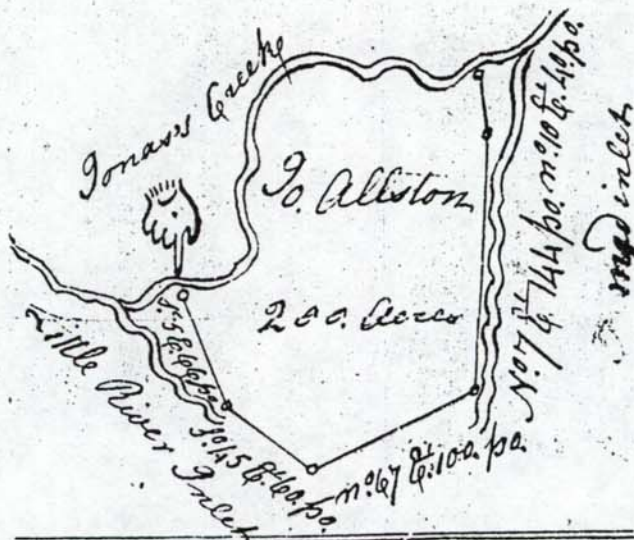 Jonas's Creek
Jo. Allston
200. Acres
Little River Inlet
So. 45 Et. 60. po.
No. 67 Et. 100. po.
No. 7 Et. 144 po. No. 10 Et. 40. po.
mud inlet